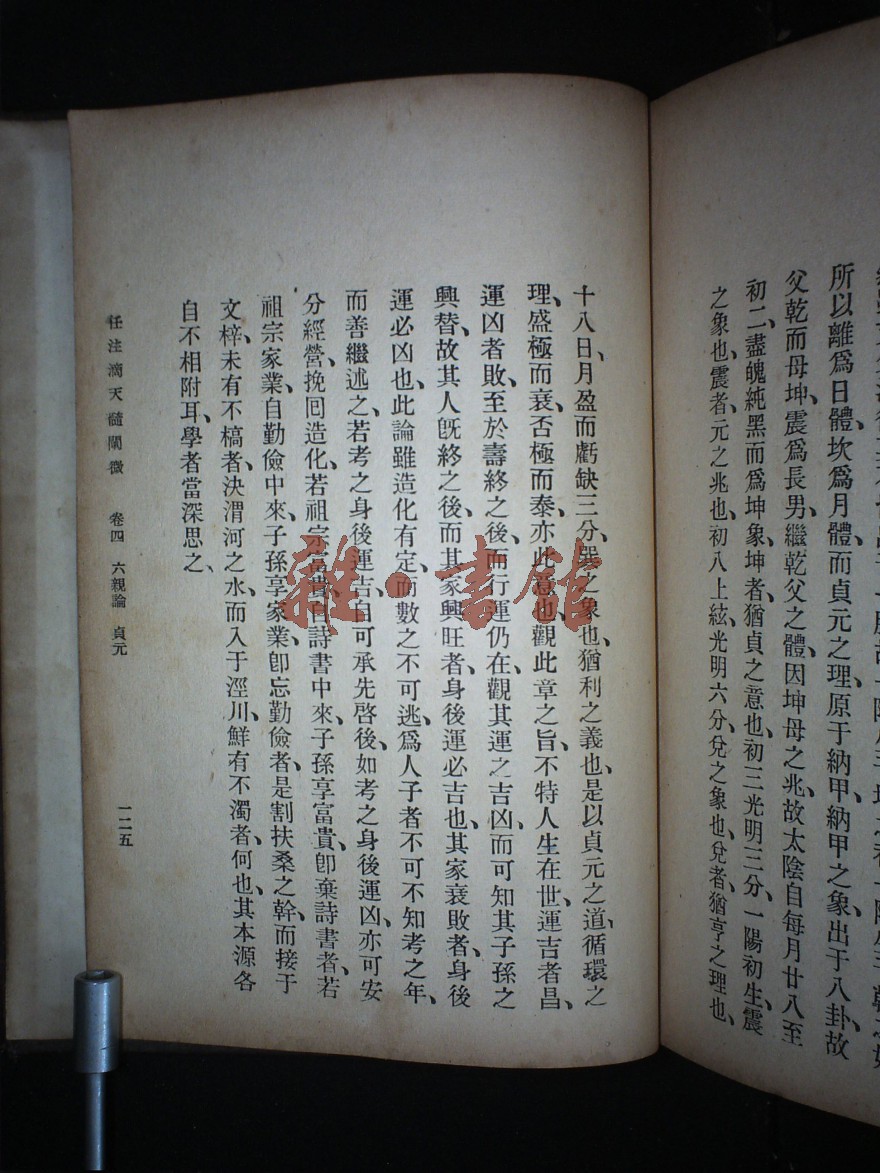 所以離爲日體、坎爲月體、而貞元之理、原于納甲、納甲之象、出于八卦、故
父乾而母坤、震爲長男、繼乾父之體、因坤母之兆、故太陰自每月廿八至
初二、盡魄純黑而爲坤象、坤者、猶貞之意也、初三光明三分、一陽初生、震
之象也、震者、元之兆也、初八上絃、光明六分、兌之象也、兌者、猶亨之理也、
十八日、月盈而虧缺三分、巽之象也、猶利之義也、是以貞元之道、循環之
理、盛極而衰、否極而泰、亦此意也、觀此章之旨、不特人生在世、運吉者昌、
運凶者敗、至於壽終之後、而行運仍在、觀其運之吉凶、而可知其子孫之
興替、故其人既終之後、而其家興旺者、身後運必吉也、其家衰敗者、身後
運必凶也、此論雖造化有定、而數之不可逃、爲人子者、不可不知考之年、
而善繼述之、若考之身後運吉、自可承先啓後、如考之身後運凶、亦可安
分經營、挽回造化、若祖宗富貴、自詩書中來、子孫享富貴、卽棄詩書者、若
祖宗家業、自勤儉中來、子孫享家業、卽忘勤儉者、是割扶桑之幹、而接于
文梓、未有不槁者、決渭河之水、而入于涇川、鮮有不濁者、何也、其本源各
自不相附耳、學者當深思之、
任注滴天髓闡微　卷四　六親論　貞元
一二五
雜·書館